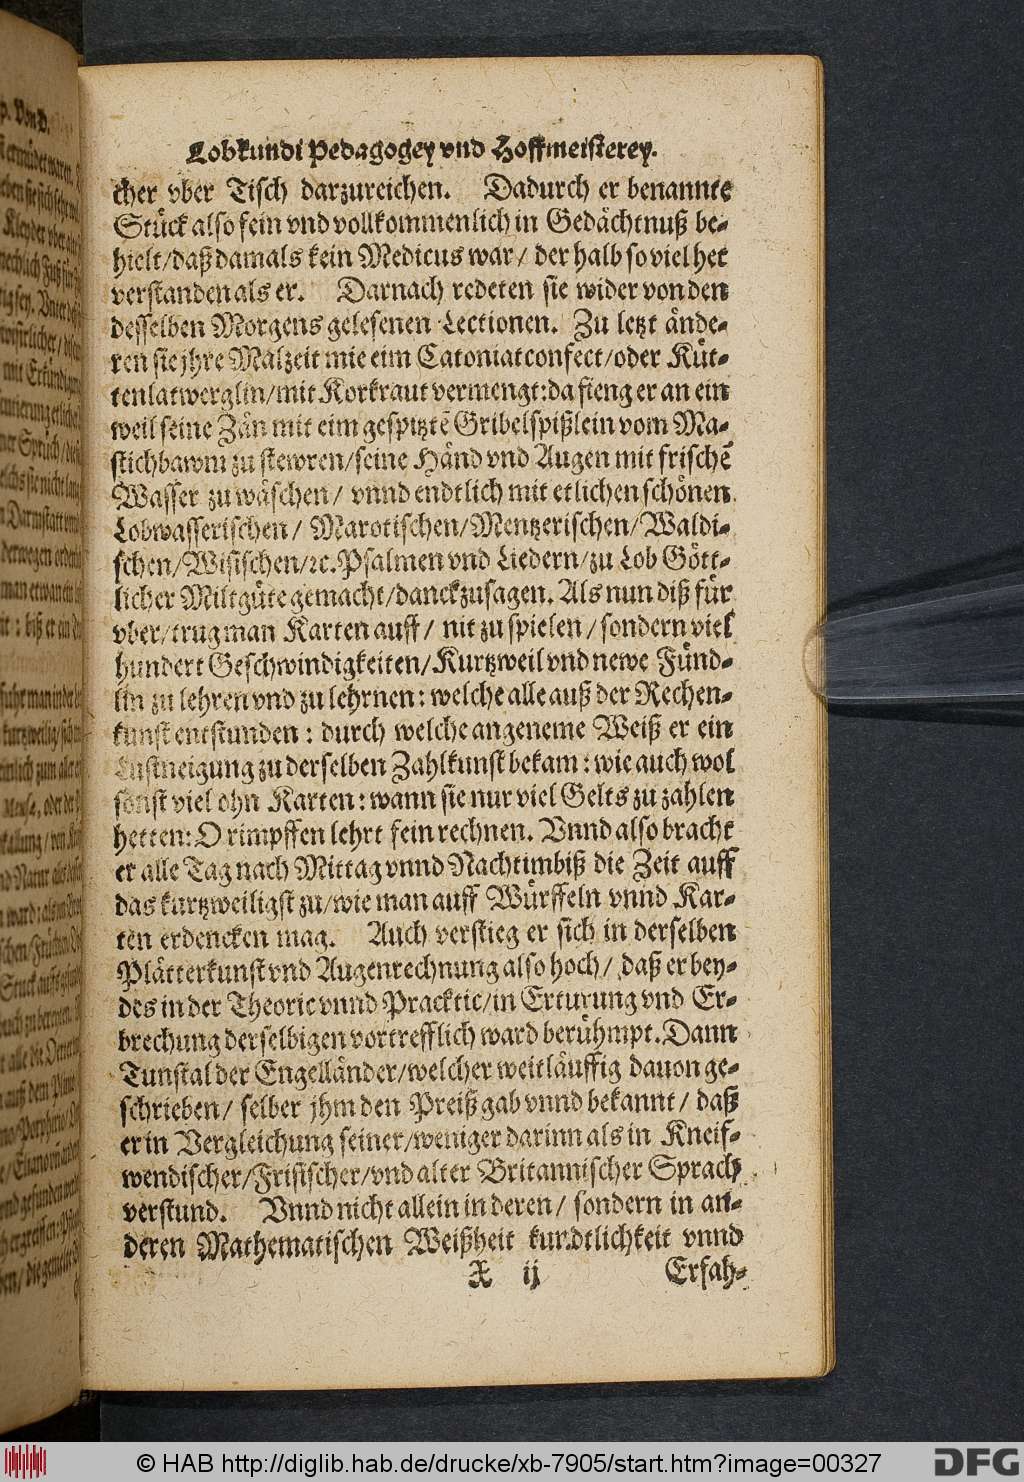 Lobkundi Pedagogey vnd Hoffmeisterey.
cher vber Tisch darzureichen. Dadurch er benannte
Stück also fein vnd vollkommenlich in Gedächtnuß be-
hielt/daß damals kein Medicus war/ der halb so viel het
verstanden als er. Darnach redeten sie wider von den
desselben Morgens gelesenen Lectionen. Zu letzt ände-
ren sie jhre Malzeit mie eim Catoniat confect/oder Küt-
tenlatwerglin/mit Korkraut vermengt: da fieng er an ein
weil seine Zän mit eim gespitztē Gribelspißlein vom Ma-
stichbawm zu stewren/seine Händ vnd Augen mit frischē
Wasser zu wäschen/ vnnd endtlich mit etlichen schönen
Lobwasserischen/ Marotischen/Mentzerischen/Waldi-
schen/Wisischen/ꝛc. Psalmen vnd Liedern/zu Lob Gött-
licher Miltgüte gemacht/danckzusagen. Als nun diß für
vber/trug man Karten auff/ nit zu spielen/sondern viel
hundert Geschwindigkeiten/Kurtzweil vnd newe Fünd-
lin zu lehren vnd zu lehrnen: welche alle auß der Rechen-
kunst entstunden: durch welche angeneme Weiß er ein
Lustneigung zu derselben Zahlkunst bekam: wie auch wol
sonst viel ohn Karten: wann sie nur viel Gelts zu zahlen
hetten: O rimpffen lehrt fein rechnen. Vnnd also bracht
er alle Tag nach Mittag vnnd Nachtimbiß die Zeit auff
das kurtzweiligst zu/wie man auff Würffeln vnnd Kar-
ten erdencken mag. Auch verstieg er sich in derselben
Plätterkunst vnd Augenrechnung also hoch/ daß er bey-
des in der Theoric vnnd Pracktic/in Erturung vnd Er-
brechung derselbigen vortrefflich ward berühmpt. Dann
Tunstal der Engelländer/welcher weitläuffig dauon ge-
schrieben/ selber jhm den Preiß gab vnnd bekannt/ daß
er in Vergleichung seiner/weniger darinn als in Kneif-
wendischer/Frisischer/vnd alter Britannischer Sprach
verstund. Vnnd nicht allein in deren/ sondern in an-
deren Mathematischen Weißheit kundtlichkeit vnnd
X ij Erfah-
© HAB http://diglib.hab.de/drucke/xb-7905/start.htm?image=00327
DFG